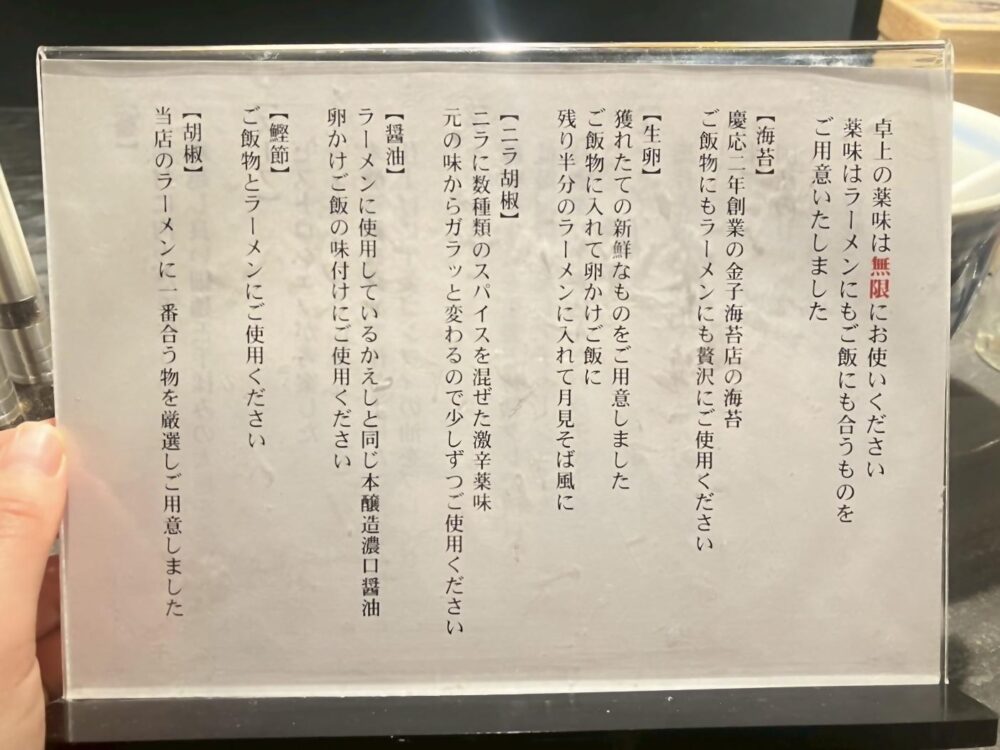 卓上の薬味は無限にお使いください
薬味はラーメンにもご飯にも合うものを
ご用意いたしました
【海苔】
慶応二年創業の金子海苔店の海苔
ご飯物にもラーメンにも贅沢にご使用ください
【生卵】
獲れたての新鮮なものをご用意しました
ご飯物に入れて卵かけご飯に
残り半分のラーメンに入れて月見そば風に
【ニラ胡椒】
ニラに数種類のスパイスを混ぜた激辛薬味
元の味からガラッと変わるので少しずつご使用ください
【醤油】
ラーメンに使用しているかえしと同じ本醸造濃口醤油
卵かけご飯の味付けにご使用ください
【鰹節】
ご飯物とラーメンにご使用ください
【胡椒】
当店のラーメンに一番合う物を厳選しご用意しました